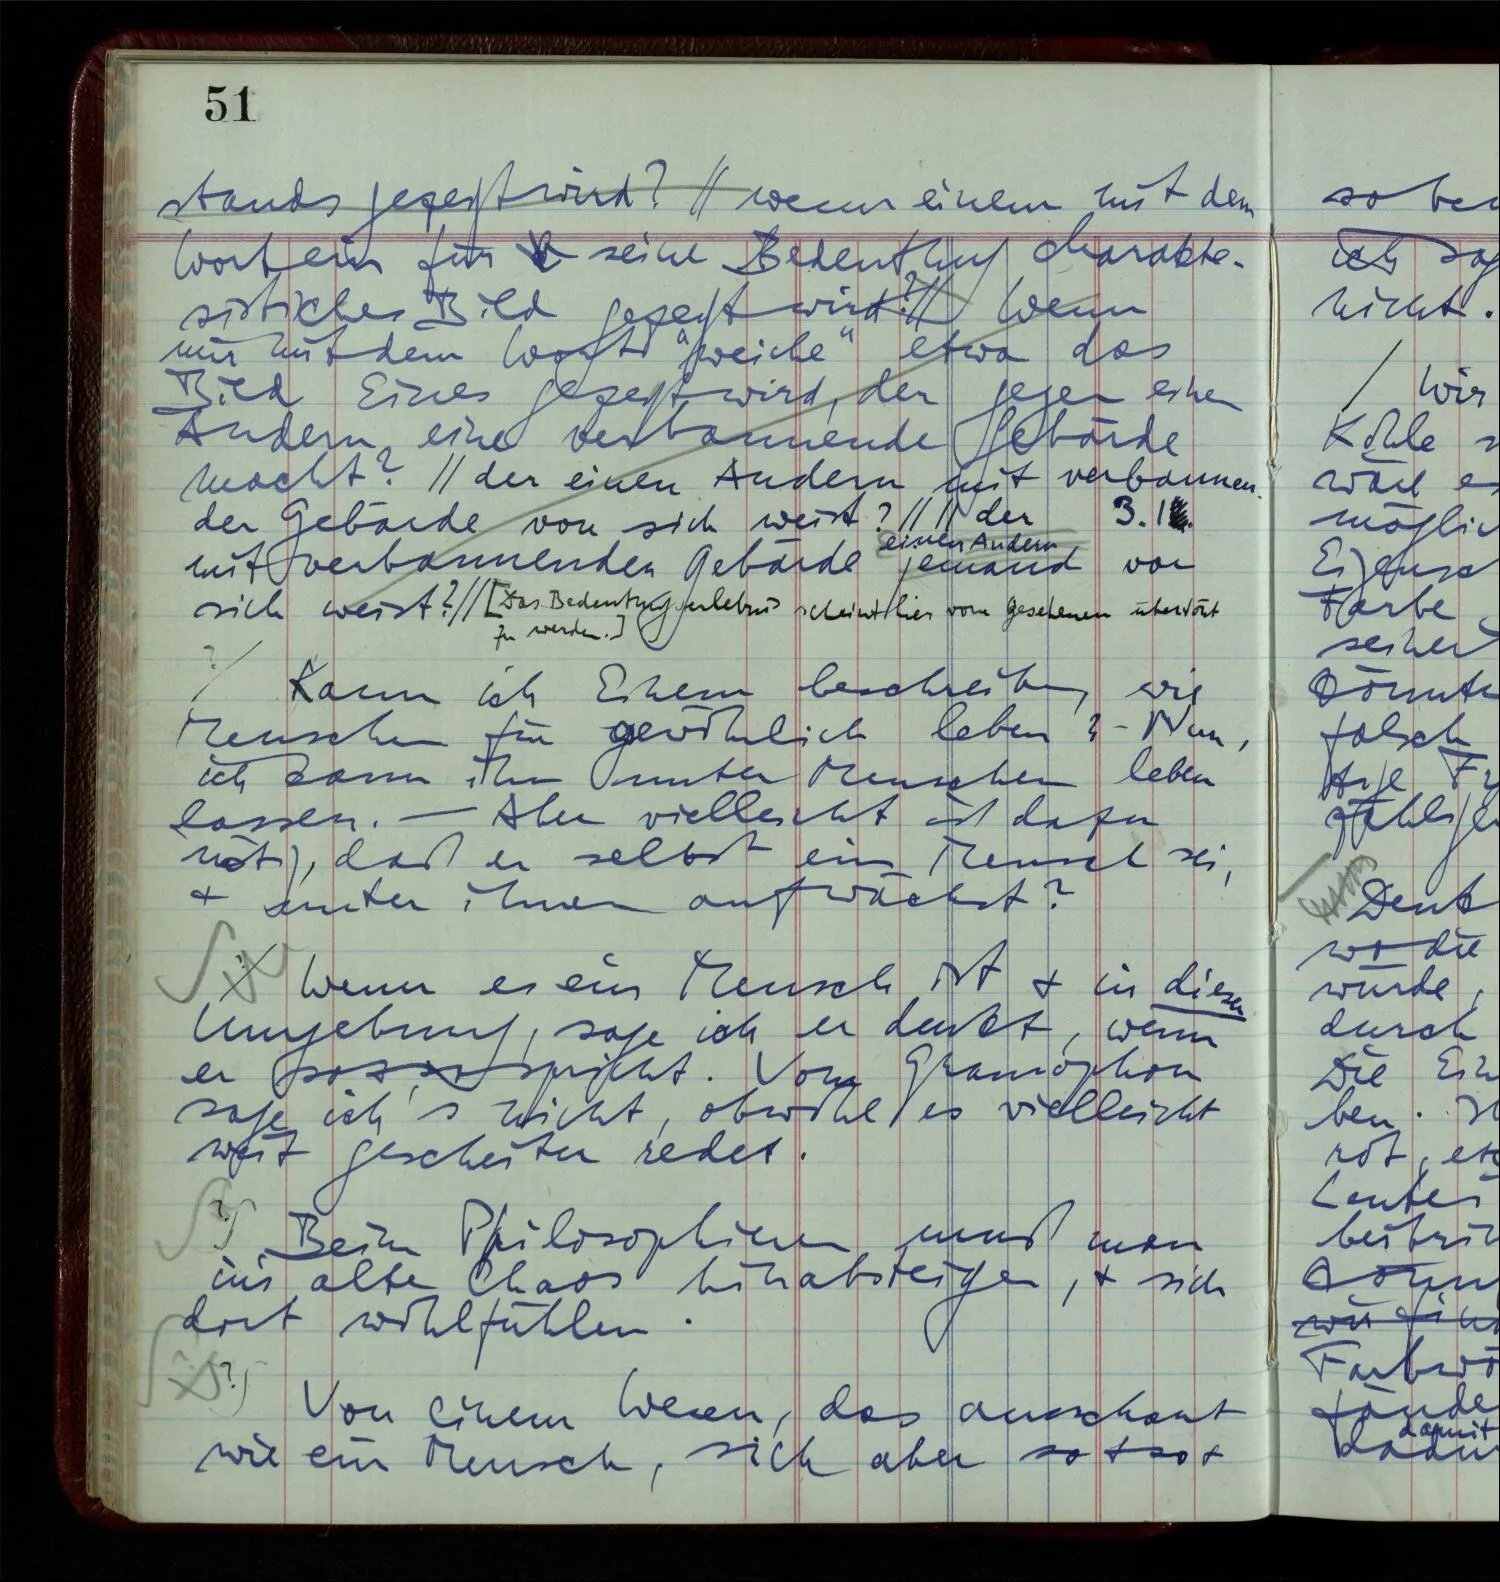 51
stands gezeigt wird? // wenn einem mit dem
Wort ein für seine Bedeutung charakte-
ristisches Bild gezeigt wird?// Wenn
mir mit dem Wort "weiche" etwa das
Bild Eines gezeigt wird, der gegen einen
Andern eine verbannende Gebärde
macht? // der einen Andern mit verbannen-
der Gebärde von sich weist? // // der 3.1.
einen Andern
mit verbannenden Gebärde jemand von
sich weist?// [Das Bedeutungserlebnis scheint hier vom Gesehenen übertönt
zu werden.]
?/ Kann ich Einem beschreiben, wie
Menschen für gewöhnlich leben? – Nun,
ich kann ihn unter Menschen leben
lassen. — Aber vielleicht ist dazu
nötig, daß er selbst ein Mensch sei,
+ unter ihnen aufwächst?
Wenn es ein Mensch ist + in dieser
Umgebung, sage ich er denkt, wenn
er so + so spricht. Vom Gramophon
sage ich's nicht, obwohl es vielleicht
weit gescheiter redet.
Beim Philosophieren muß man
ins alte Chaos hinabsteigen, + sich
dort wohlfühlen.
Von einem Wesen, das ausschaut
wie ein Mensch, sich aber so + so
ich
nicht.
/ Wir
Kohle
Farbe
falsch
Denk
wo die
würde,
durch
Die
ben.
rot, etc
damit